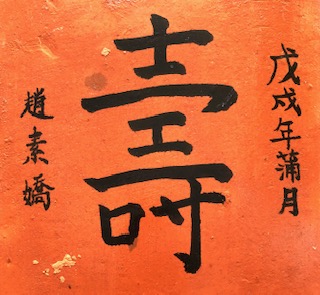 戊戌年蒲月
壽
趙素嬌